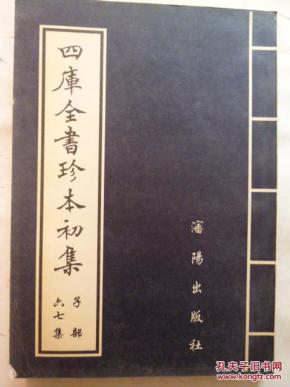 四庫全書珍本初集
子部
六七集
瀋陽出版社
孔夫子旧书网